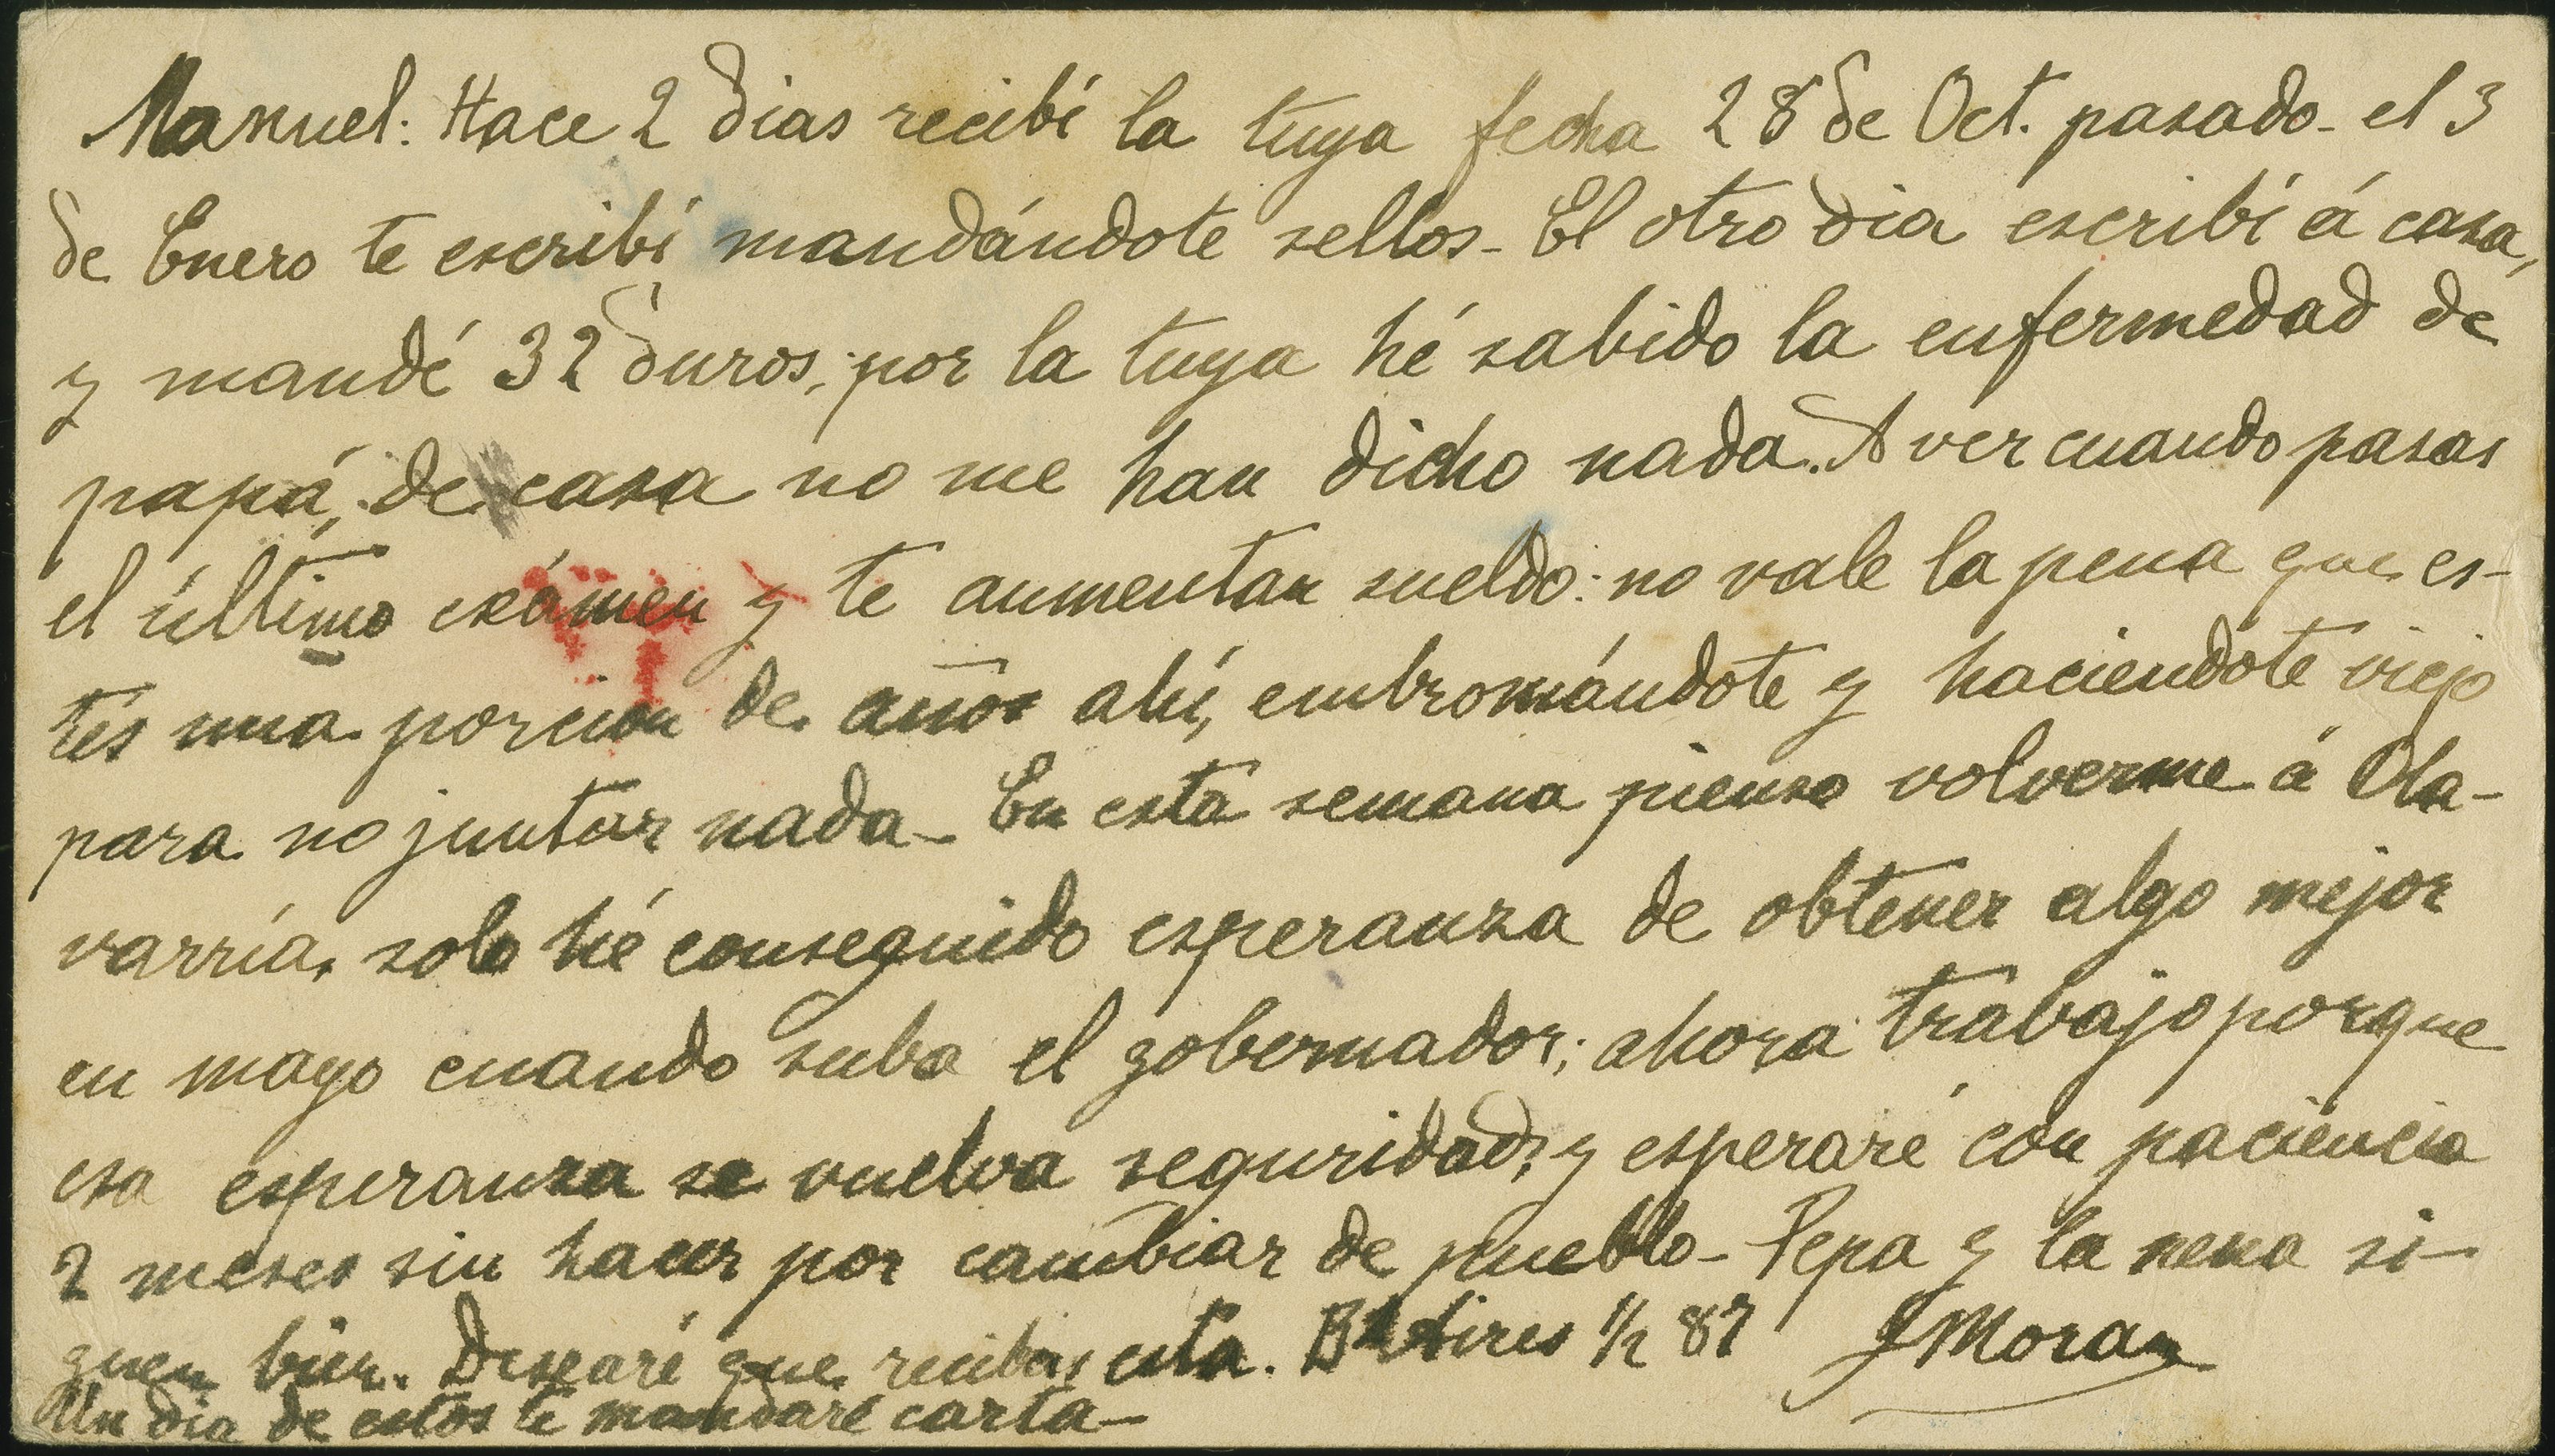 Manuel: Hace 2 dias recibí la tuya fecha 28 de Oct. pasado - el 3
de Enero te escribí mandándote sellos - El otro dia escribí á casa,
y mandé 32 duros; por la tuya hé sabido la enfermedad de
papá, de casa no me han dicho nada. A ver cuando pasas
el último exámen y te aumentan sueldo: no vale la pena que es-
tés una porcion de años ahí, embromándote y haciendote viejo
para no juntar nada - En esta semana pienso volverme á Ola-
varría, solo hé conseguido esperanza de obtener algo mejor
en mayo cuando suba el gobernador; ahora trabajo porque
esa esperanza se vuelva seguridad, y esperaré con paciencia
2 meses sin hacer por cambiar de pueblo - Pepa y la nena si-
guen bien. Desearé que recibas esta. Bs Aires 1/2 87 J Moran
Un dia de estos te mandaré carta -